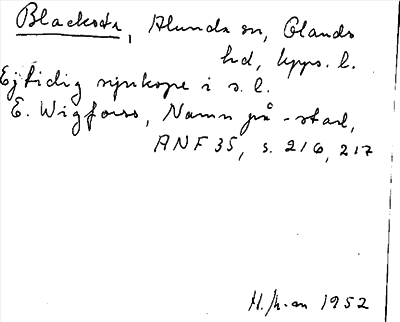 Blacksta, Alunda sn, Olands
hd, Upps. l.
Ej tidig synkope i s. l.
E. Wigforss, Namn på -stad,
ANF 35, s. 216, 217
H. 1952